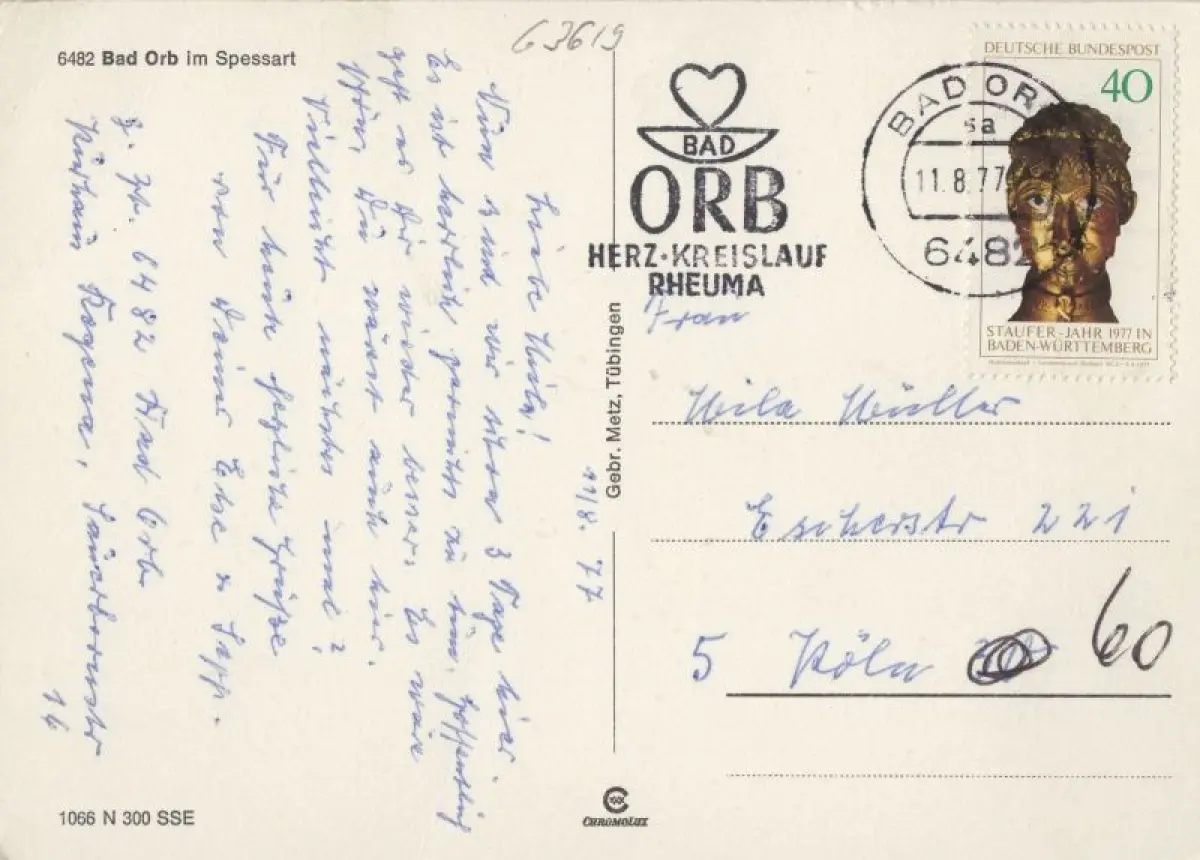 6482 Bad Orb im Spessart
63619
BAD
ORB
HERZ-KREISLAUF
RHEUMA
BAD ORB
sa
11.8.77
6482
DEUTSCHE BUNDESPOST
40
STAUFER-JAHR 1977 IN
BADEN-WÜRTTEMBERG
11/8. 77
Liebe Mila!
Nun sind wir schon 3 Tage hier.
Es ist herrlich garnichts zu tun. Hoffentlich
geht es Dir wieder besser. Es wäre
schön, Du wärst auch hier.
Vielleicht mal?
Für heute herzliche Grüße
von Deiner Else u. Sepp.
z. Zt. 6482 Bad Orb
Kurhaus Rogena, Sauerbornstr
16
Gebr. Metz, Tübingen
Frau
Mila Müller
Escherstr 221
5 Köln 60
1066 N 300 SSE
CHROMOLUX